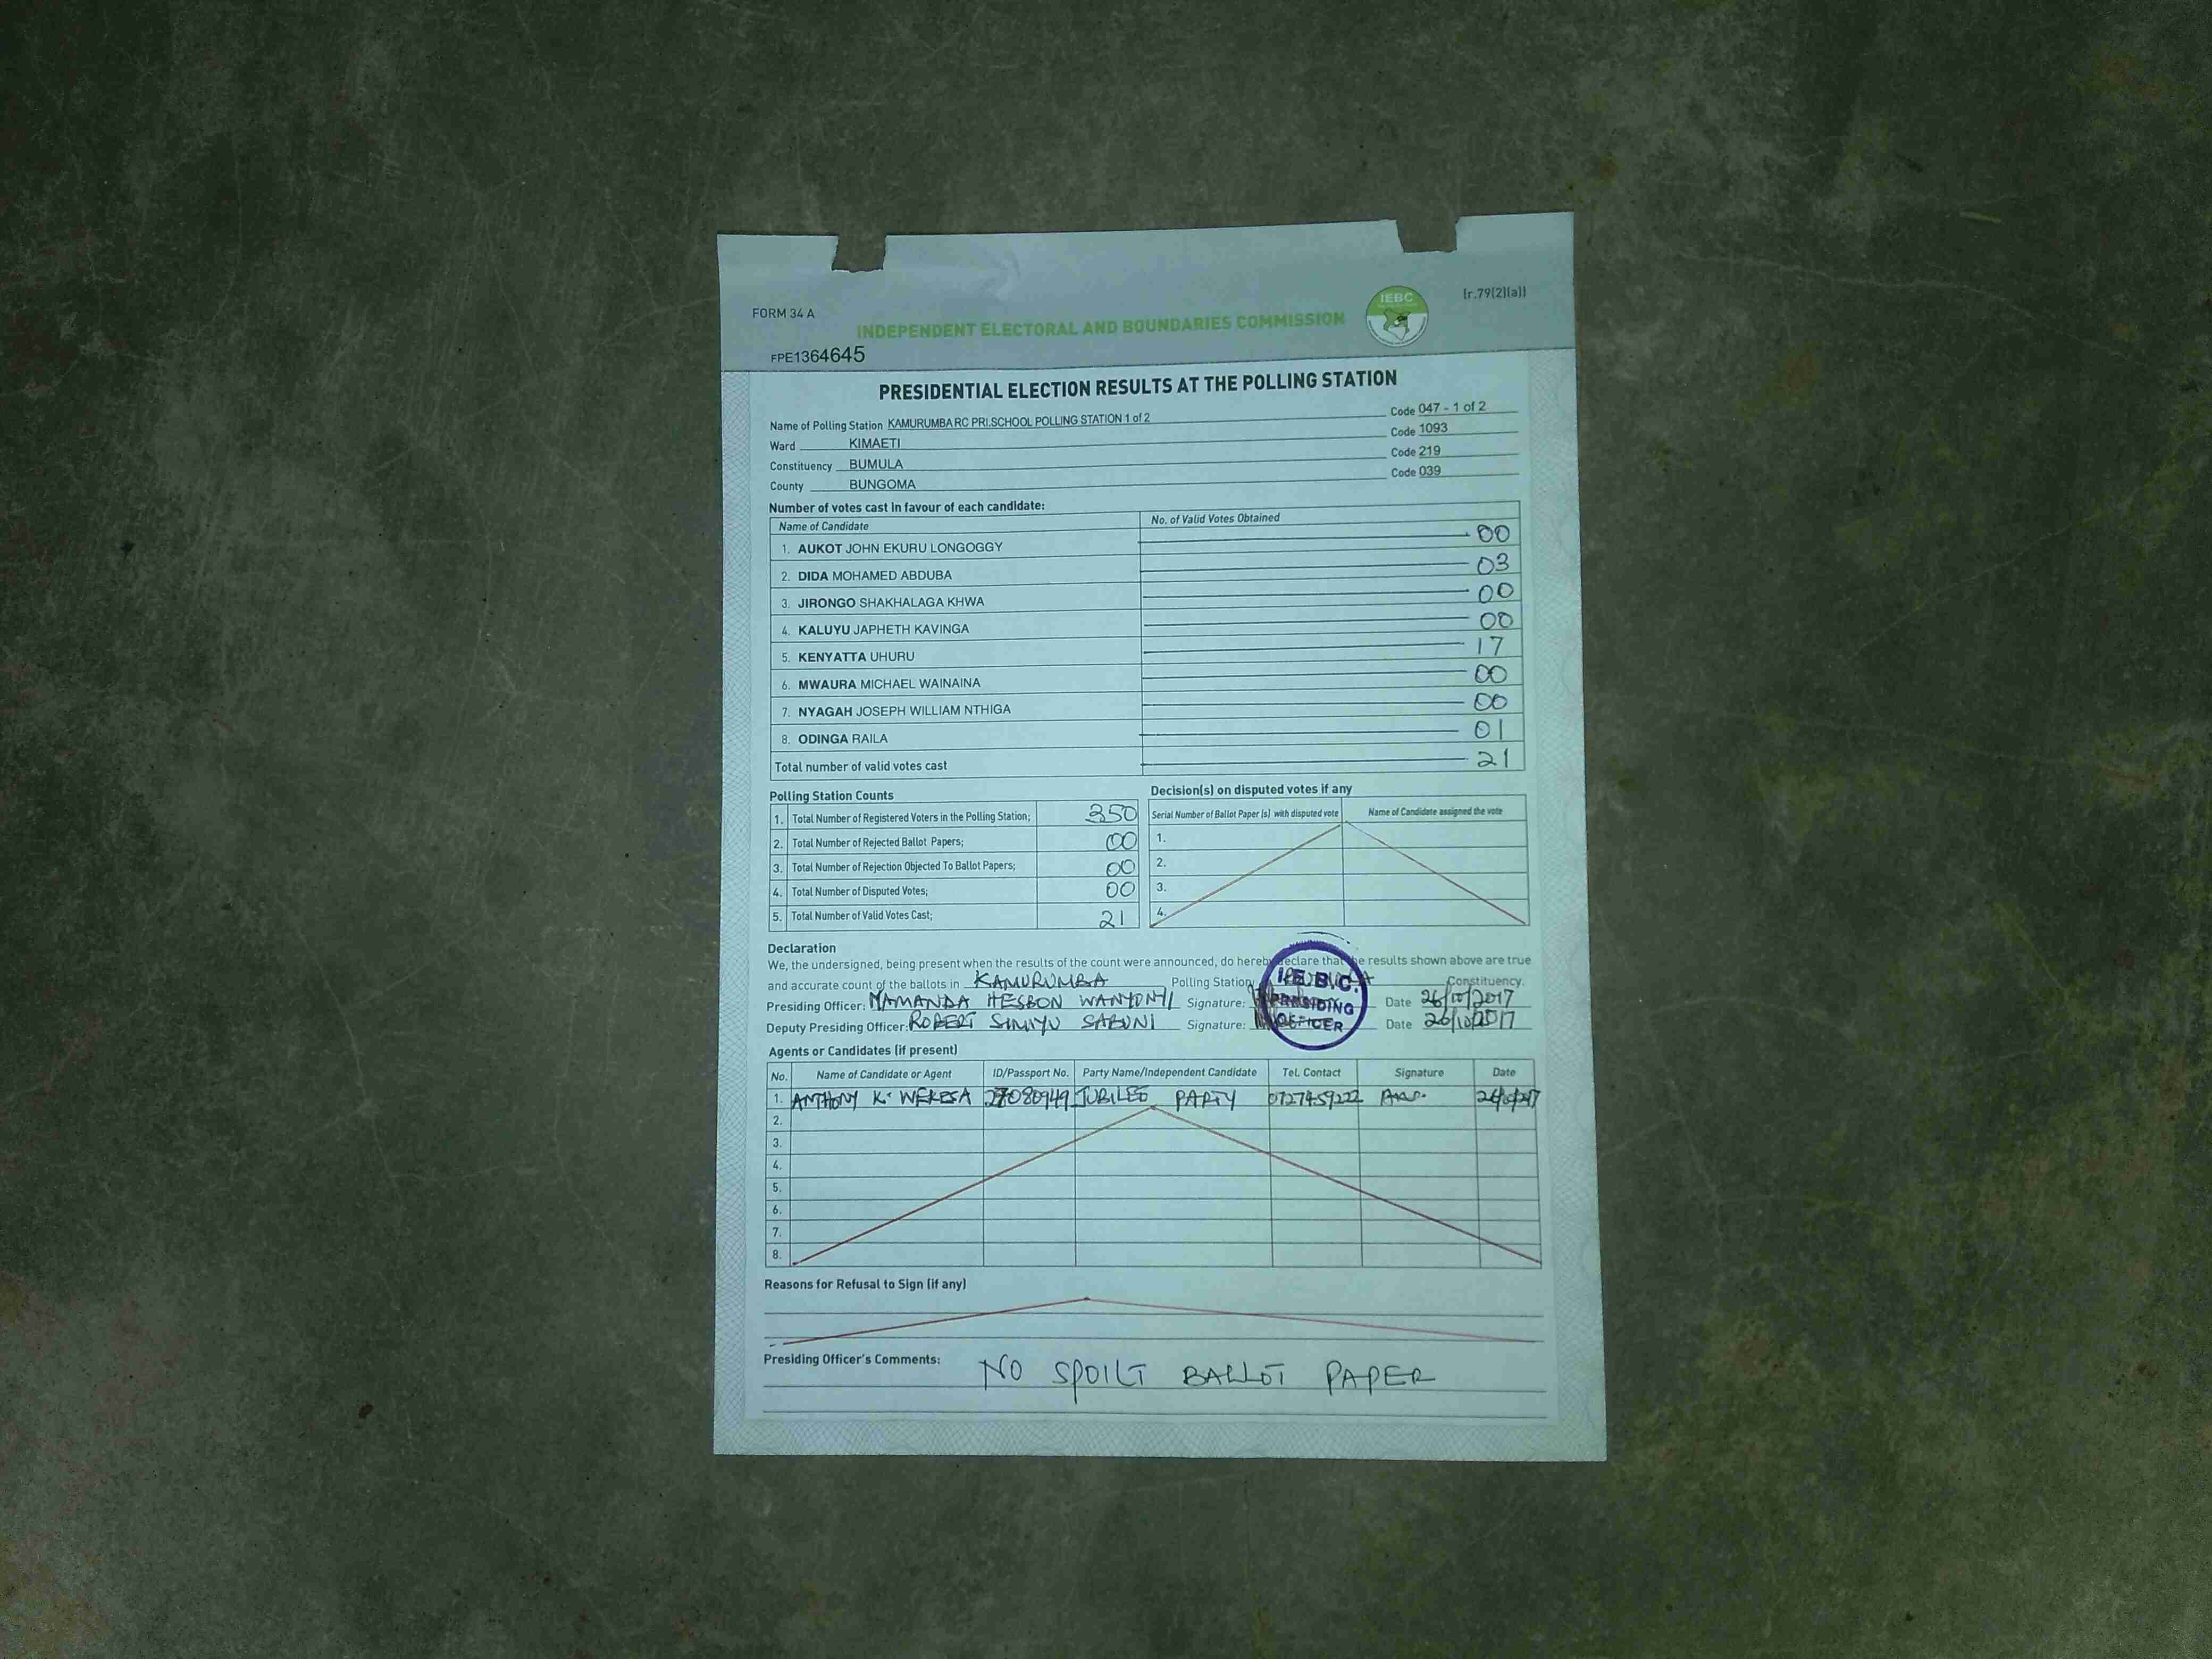 FORM 34 A
IEBC
[r.79(2)(a)]
INDEPENDENT ELECTORAL AND BOUNDARIES COMMISSION
FPE1364645
PRESIDENTIAL ELECTION RESULTS AT THE POLLING STATION
Name of Polling Station KAMURUMBA RC PRI.SCHOOL POLLING STATION 1 of 2 Code 047 - 1 of 2
Ward KIMAETI Code 1093
Constituency BUMULA Code 219
County BUNGOMA Code 039
Number of votes cast in favour of each candidate:
Name of Candidate No. of Valid Votes Obtained
1. AUKOT JOHN EKURU LONGOGGY 00
2. DIDA MOHAMED ABDUBA 03
3. JIRONGO SHAKHALAGA KHWA 00
4. KALUYU JAPHETH KAVINGA 00
5. KENYATTA UHURU 17
6. MWAURA MICHAEL WAINAINA 00
7. NYAGAH JOSEPH WILLIAM NTHIGA 00
8. ODINGA RAILA 01
Total number of valid votes cast 21
Polling Station Counts
1. Total Number of Registered Voters in the Polling Station; 350
2. Total Number of Rejected Ballot Papers; 00
3. Total Number of Rejection Objected To Ballot Papers; 00
4. Total Number of Disputed Votes; 00
5. Total Number of Valid Votes Cast; 21
Decision(s) on disputed votes if any
Serial Number of Ballot Paper (s) with disputed vote Name of Candidate assigned the vote
1.
2.
3.
4.
Declaration
We, the undersigned, being present when the results of the count were announced, do hereby declare that the results shown above are true
and accurate count of the ballots in KAMURUMBA Polling Station Constituency.
Presiding Officer: WAMANDA HESBON WANYONYI Signature: Date 26/10/2017
Deputy Presiding Officer: ROBERT SIMIYU SABUNI Signature: Date 26/10/2017
I.E.B.C.
PRESIDING
OFFICER
Agents or Candidates (if present)
No. Name of Candidate or Agent ID/Passport No. Party Name/Independent Candidate Tel. Contact Signature Date
1. ANTHONY K. WEKESA 27080949 JUBILEE PARTY 0727459222 26/10/2017
2.
3.
4.
5.
6.
7.
8.
Reasons for Refusal to Sign (if any)
Presiding Officer's Comments: NO SPOILT BALLOT PAPER